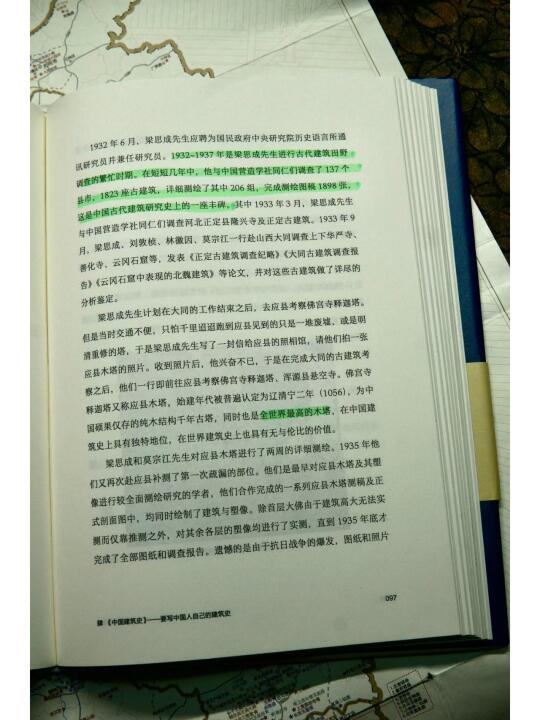 1932 年 6 月，梁思成先生应聘为国民政府中央研究院历史语言所通
讯研究员并兼任研究员。1932–1937 年是梁思成先生进行古代建筑田野
调查的繁忙时期。在短短几年中，他与中国营造学社同仁们调查了 137 个
县市，1823 座古建筑，详细测绘了其中 206 组，完成测绘图稿 1898 张，
这是中国古代建筑研究史上的一座丰碑。其中 1933 年 3 月，梁思成先生
与中国营造学社同仁们调查河北正定县隆兴寺及正定古建筑。1933 年 9
月，梁思成、刘敦桢、林徽因、莫宗江一行赴山西大同调查上下华严寺、
善化寺、云冈石窟等，发表《正定古建筑调查纪略》《大同古建筑调查报
告》《云冈石窟中表现的北魏建筑》等论文，并对这些古建筑做了详尽的
分析鉴定。
梁思成先生计划在大同的工作结束之后，去应县考察佛宫寺释迦塔。
但是当时交通不便，只怕千里迢迢跑到应县见到的只是一堆废墟，或是明
清重修的塔，于是梁思成先生写了一封信给应县的照相馆，请他们拍一张
应县木塔的照片。收到照片后，他兴奋不已，于是在完成大同的古建筑考
察之后，他们一行即前往应县考察佛宫寺释迦塔、浑源县悬空寺。佛宫寺
释迦塔又称应县木塔，始建年代被普遍认定为辽清宁二年（1056），为中
国硕果仅存的纯木结构千年古塔，同时也是全世界最高的木塔，在中国建
筑史上具有独特地位，在世界建筑史上也具有无与伦比的价值。
梁思成和莫宗江先生对应县木塔进行了两周的详细测绘。1935 年他
们又再次赴应县补测了第一次疏漏的部位。他们是最早对应县木塔及其塑
像进行较全面测绘研究的学者，他们合作完成的一系列应县木塔测稿及正
式剖面图中，均同时绘制了建筑与塑像。除首层大佛由于建筑高大无法实
测而仅靠推测之外，对其余各层的塑像均进行了实测，直到 1935 年底才
完成了全部图纸和调查报告。遗憾的是由于抗日战争的爆发，图纸和照片
肆 《中国建筑史》——要写中国人自己的建筑史
097